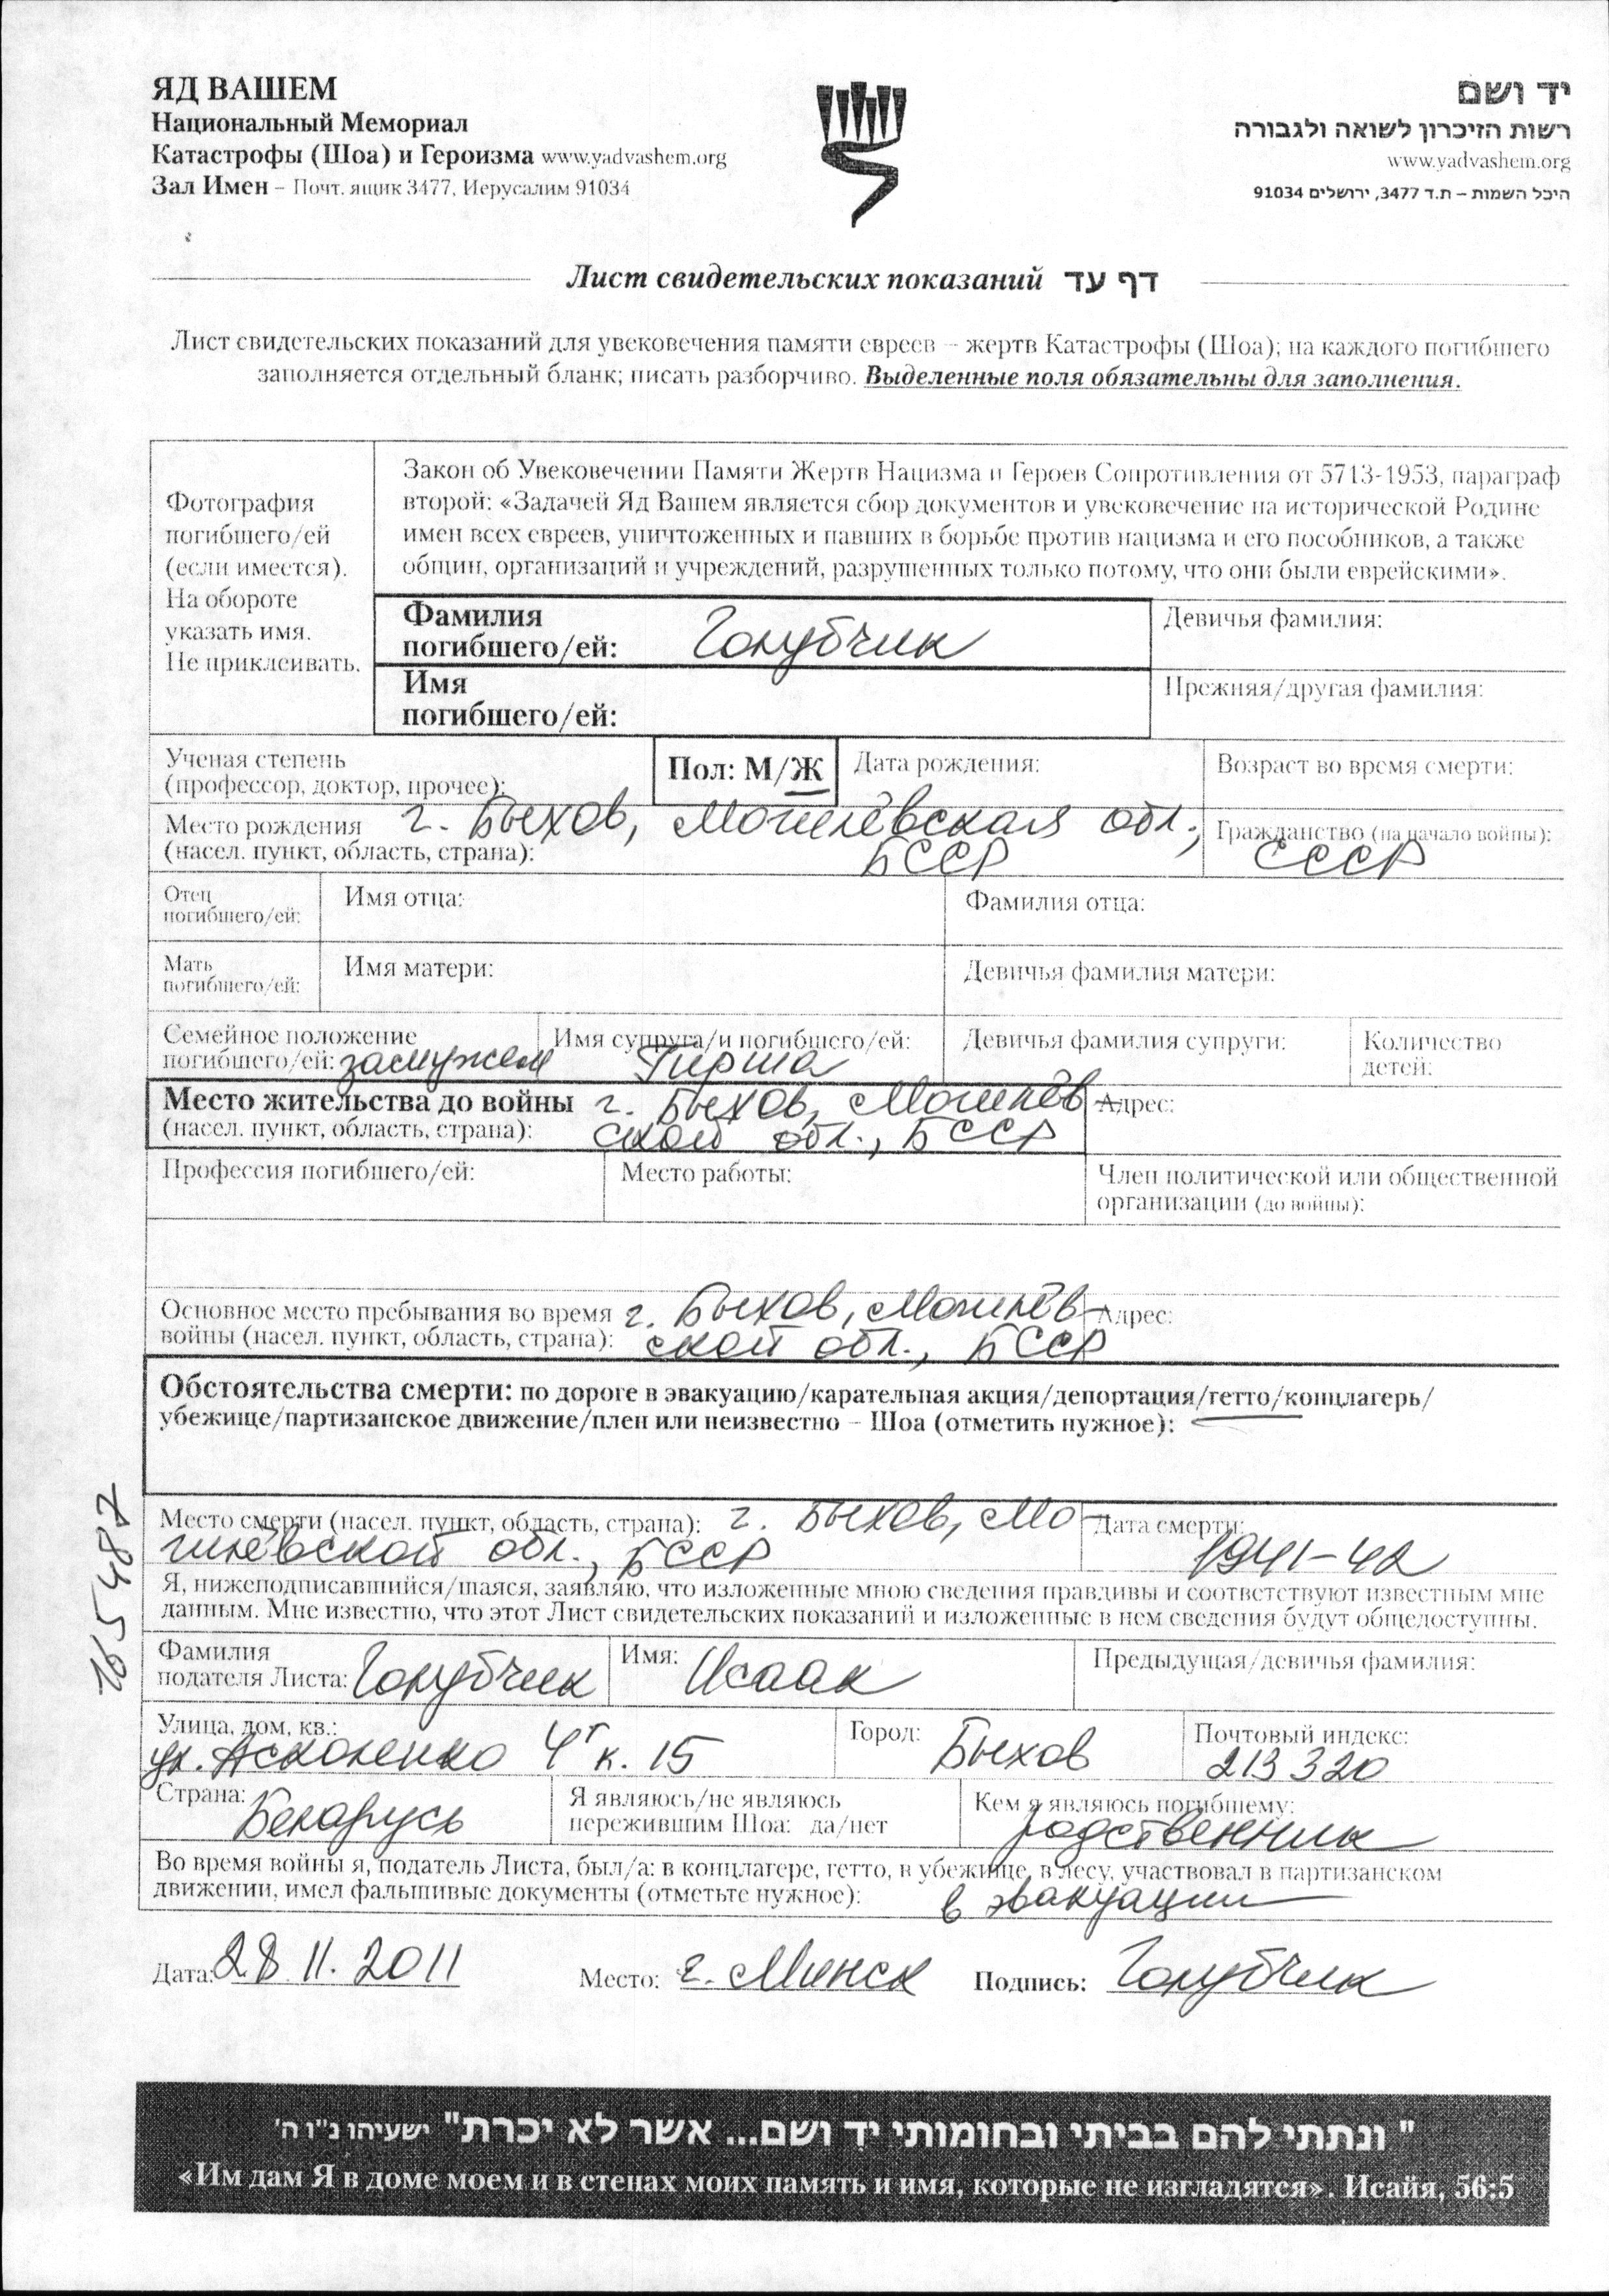 ЯД ВАШЕМ
Национальный Мемориал
Катастрофы (Шоа) и Героизма www.yadvashem.org
Зал Имен – Почт. ящик 3477, Иерусалим 91034
יד ושם
רשות הזיכרון לשואה ולגבורה
www.yadvashem.org
היכל השמות – ת.ד 3477, ירושלים 91034
Лист свидетельских показаний דף עד
Лист свидетельских показаний для увековечения памяти евреев – жертв Катастрофы (Шоа); на каждого погибшего
заполняется отдельный бланк; писать разборчиво. Выделенные поля обязательны для заполнения.
Фотография
погибшего/ей
(если имеется).
На обороте
указать имя.
Не приклеивать.
Закон об Увековечении Памяти Жертв Нацизма и Героев Сопротивления от 5713-1953, параграф
второй: «Задачей Яд Вашем является сбор документов и увековечение на исторической Родине
имен всех евреев, уничтоженных и павших в борьбе против нацизма и его пособников, а также
общин, организаций и учреждений, разрушенных только потому, что они были еврейскими».
Фамилия
погибшего/ей: Голубчик
Девичья фамилия:
Имя
погибшего/ей:
Прежняя/другая фамилия:
Ученая степень
(профессор, доктор, прочее):
Пол: М/Ж
Дата рождения:
Возраст во время смерти:
Место рождения г. Быхов, Могилёвская обл.,
(насел. пункт, область, страна): БССР
Гражданство (на начало войны):
СССР
Отец
погибшего/ей:
Имя отца:
Фамилия отца:
Мать
погибшего/ей:
Имя матери:
Девичья фамилия матери:
Семейное положение
погибшего/ей: замужем
Имя супруга/и погибшего/ей:
Гирша
Девичья фамилия супруги:
Количество
детей:
Место жительства до войны г. Быхов, Могилёв-
(насел. пункт, область, страна): ской обл., БССР
Адрес:
Профессия погибшего/ей:
Место работы:
Член политической или общественной
организации (до войны):
Основное место пребывания во время г. Быхов, Могилёв-
войны (насел. пункт, область, страна): ской обл., БССР
Адрес:
Обстоятельства смерти: по дороге в эвакуацию/карательная акция/депортация/гетто/концлагерь/
убежище/партизанское движение/плен или неизвестно – Шоа (отметить нужное):
Место смерти (насел. пункт, область, страна): г. Быхов, Мо-
гилёвской обл., БССР
Дата смерти:
1941-42
Я, нижеподписавшийся/шаяся, заявляю, что изложенные мною сведения правдивы и соответствуют известным мне
данным. Мне известно, что этот Лист свидетельских показаний и изложенные в нем сведения будут общедоступны.
165487
Фамилия
подателя Листа: Голубчик
Имя: Исаак
Предыдущая/девичья фамилия:
Улица, дом, кв.:
ул. Асконенко 4г к. 15
Город: Быхов
Почтовый индекс:
213320
Страна:
Беларусь
Я являюсь/не являюсь
пережившим Шоа: да/нет
Кем я являюсь погибшему:
родственник
Во время войны я, податель Листа, был/а: в концлагере, гетто, в убежище, в лесу, участвовал в партизанском
движении, имел фальшивые документы (отметьте нужное): в эвакуации
Дата: 28.11.2011 Место: г. Минск Подпись: Голубчик
" ונתתי להם בביתי ובחומותי יד ושם... אשר לא יכרת" ישעיהו נ"ו ה'
«Им дам Я в доме моем и в стенах моих память и имя, которые не изгладятся». Исайя, 56:5